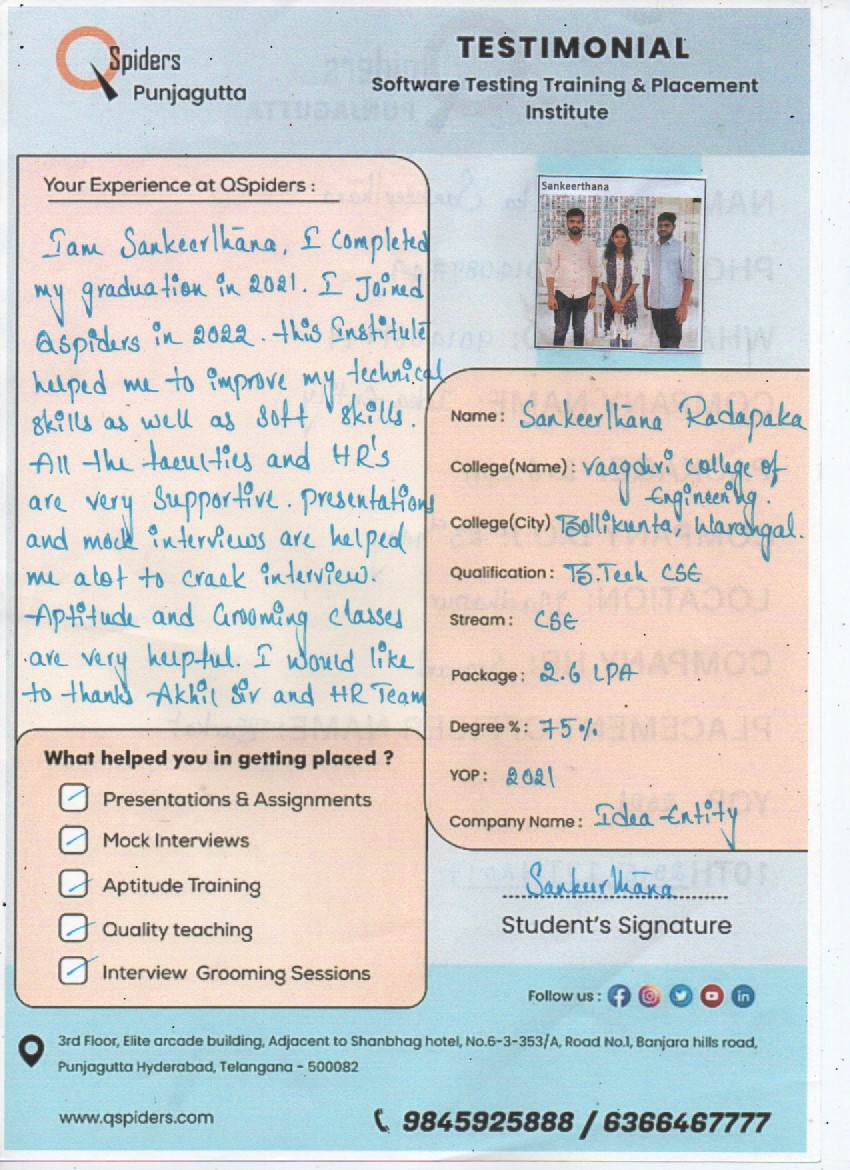 QSpiders
Punjagutta
TESTIMONIAL
Software Testing Training & Placement
Institute
Your Experience at QSpiders :
I am Sankeerthana, I completed
my graduation in 2021. I Joined
Qspiders in 2022. this Institute
helped me to improve my technical
skills as well as soft skills.
All the faculties and HR's
are very Supportive. presentations
and mock interviews are helped
me alot to crack interview.
Aptitude and Grooming classes
are very helpful. I would like
to thanks Akhil Sir and HR Team
What helped you in getting placed ?
Presentations & Assignments
Mock Interviews
Aptitude Training
Quality teaching
Interview Grooming Sessions
Sankeerthana
Name : Sankeerthana Radapaka
College(Name) : Vaagdvri college of
Engineering.
College(City) Bollikunta, Warangal.
Qualification : B.Tech CSE
Stream : CSE
Package : 2.6 LPA
Degree % : 75%
YOP : 2021
Company Name : Idea Entity
Sankeerthana
Student's Signature
Follow us :
3rd Floor, Elite arcade building, Adjacent to Shanbhag hotel, No.6-3-353/A, Road No.1, Banjara hills road,
Punjagutta Hyderabad, Telangana - 500082
www.qspiders.com
9845925888 / 6366467777